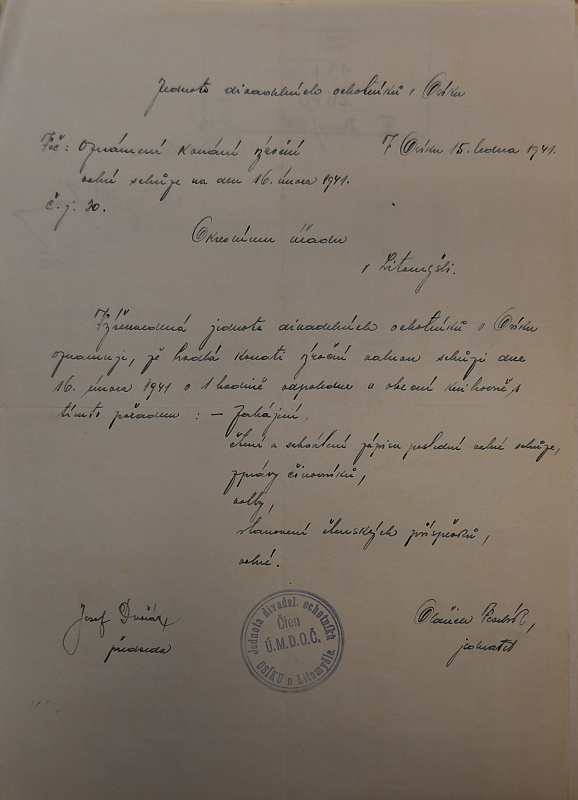 Jednota divadelních ochotníků v Osíku
Věc: Oznámení konání výroční
V Osíku 15. ledna 1941.
valné schůze na den 16. února 1941.
Č. j. 30.
Okresnímu úřadu
v Litomyšli.
Výšeuvedená jednota divadelních ochotníků v Osíku
oznamuje, že hodlá konati výroční valnou schůzi dne
16. února 1941 o 1 hodině odpoledne v obecní knihovně, s
tímto pořadem : – Zahájení,
čtení a schválení zápisu poslední valné schůze,
zprávy činovníků,
volby,
stanovení členských příspěvků,
volné.
Josef Dvořák
předseda
Jednota divadel. ochotníků
Člen
Ú.M.D.O.Č.
OSÍKU u Litomyšle.
Oldřich
jednatel